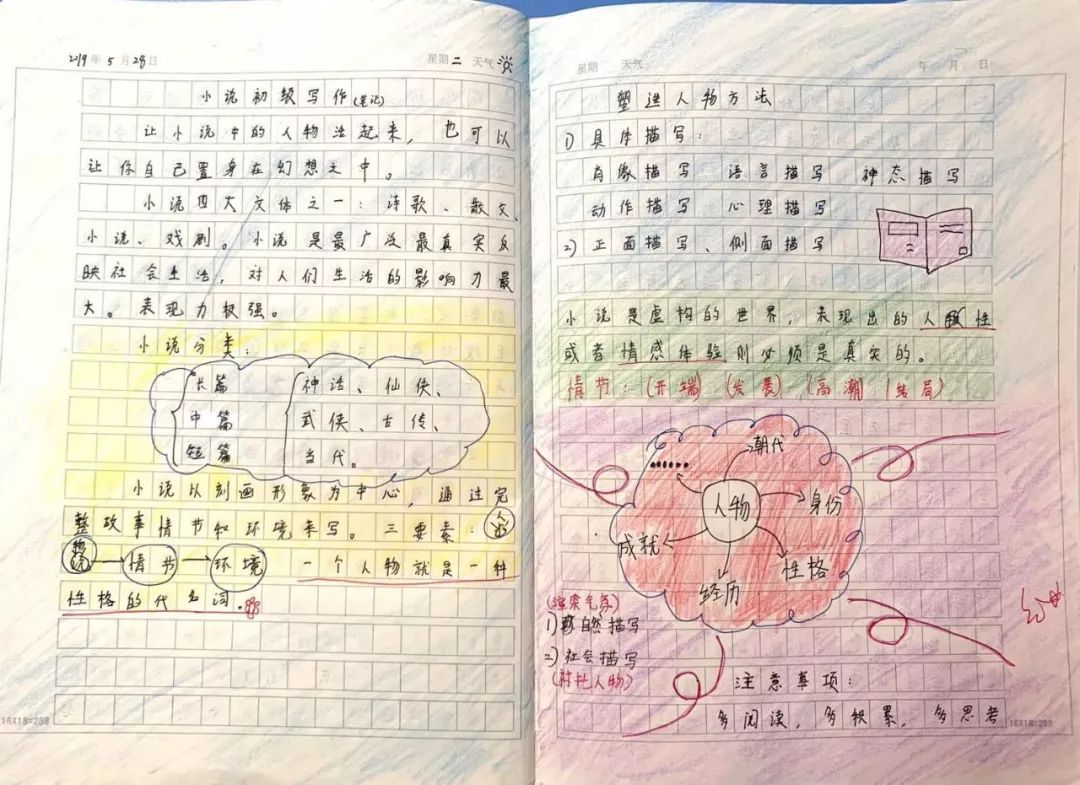 2019年5月28日 星期二 天气
小说初级写作(笔记)
让小说中的人物活起来，也可以
让你自己置身在幻想之中。
小说四大文体之一：诗歌、散文、
小说、戏剧。小说是最广泛最真实反
映社会生活，对人们生活的影响力最
大。表现力极强。
小说分类：
长篇 神话、仙侠、
中篇 武侠、古传、
短篇 当代。
小说以刻画形象为中心，通过完
整故事情节和环境来写。三要素：人
物 情节 环境 一个人物就是一种
性格的代名词.
16X18=288
星期 天气 年 月 日
塑造人物方法
1)具体描写：
肖像描写 语言描写 神态描写
动作描写 心理描写
2)正面描写、侧面描写
小说是虚构的世界，表现出的人性
或者情感体验则必须是真实的。
情节：(开端)(发展)(高潮)(结局)
潮代
······
人物
身份
成就
性格
经历
(渲染气氛)
1)自然描写
2)社会描写
(衬托人物)
注意事项：
多阅读，多积累，多思考
16X18=288